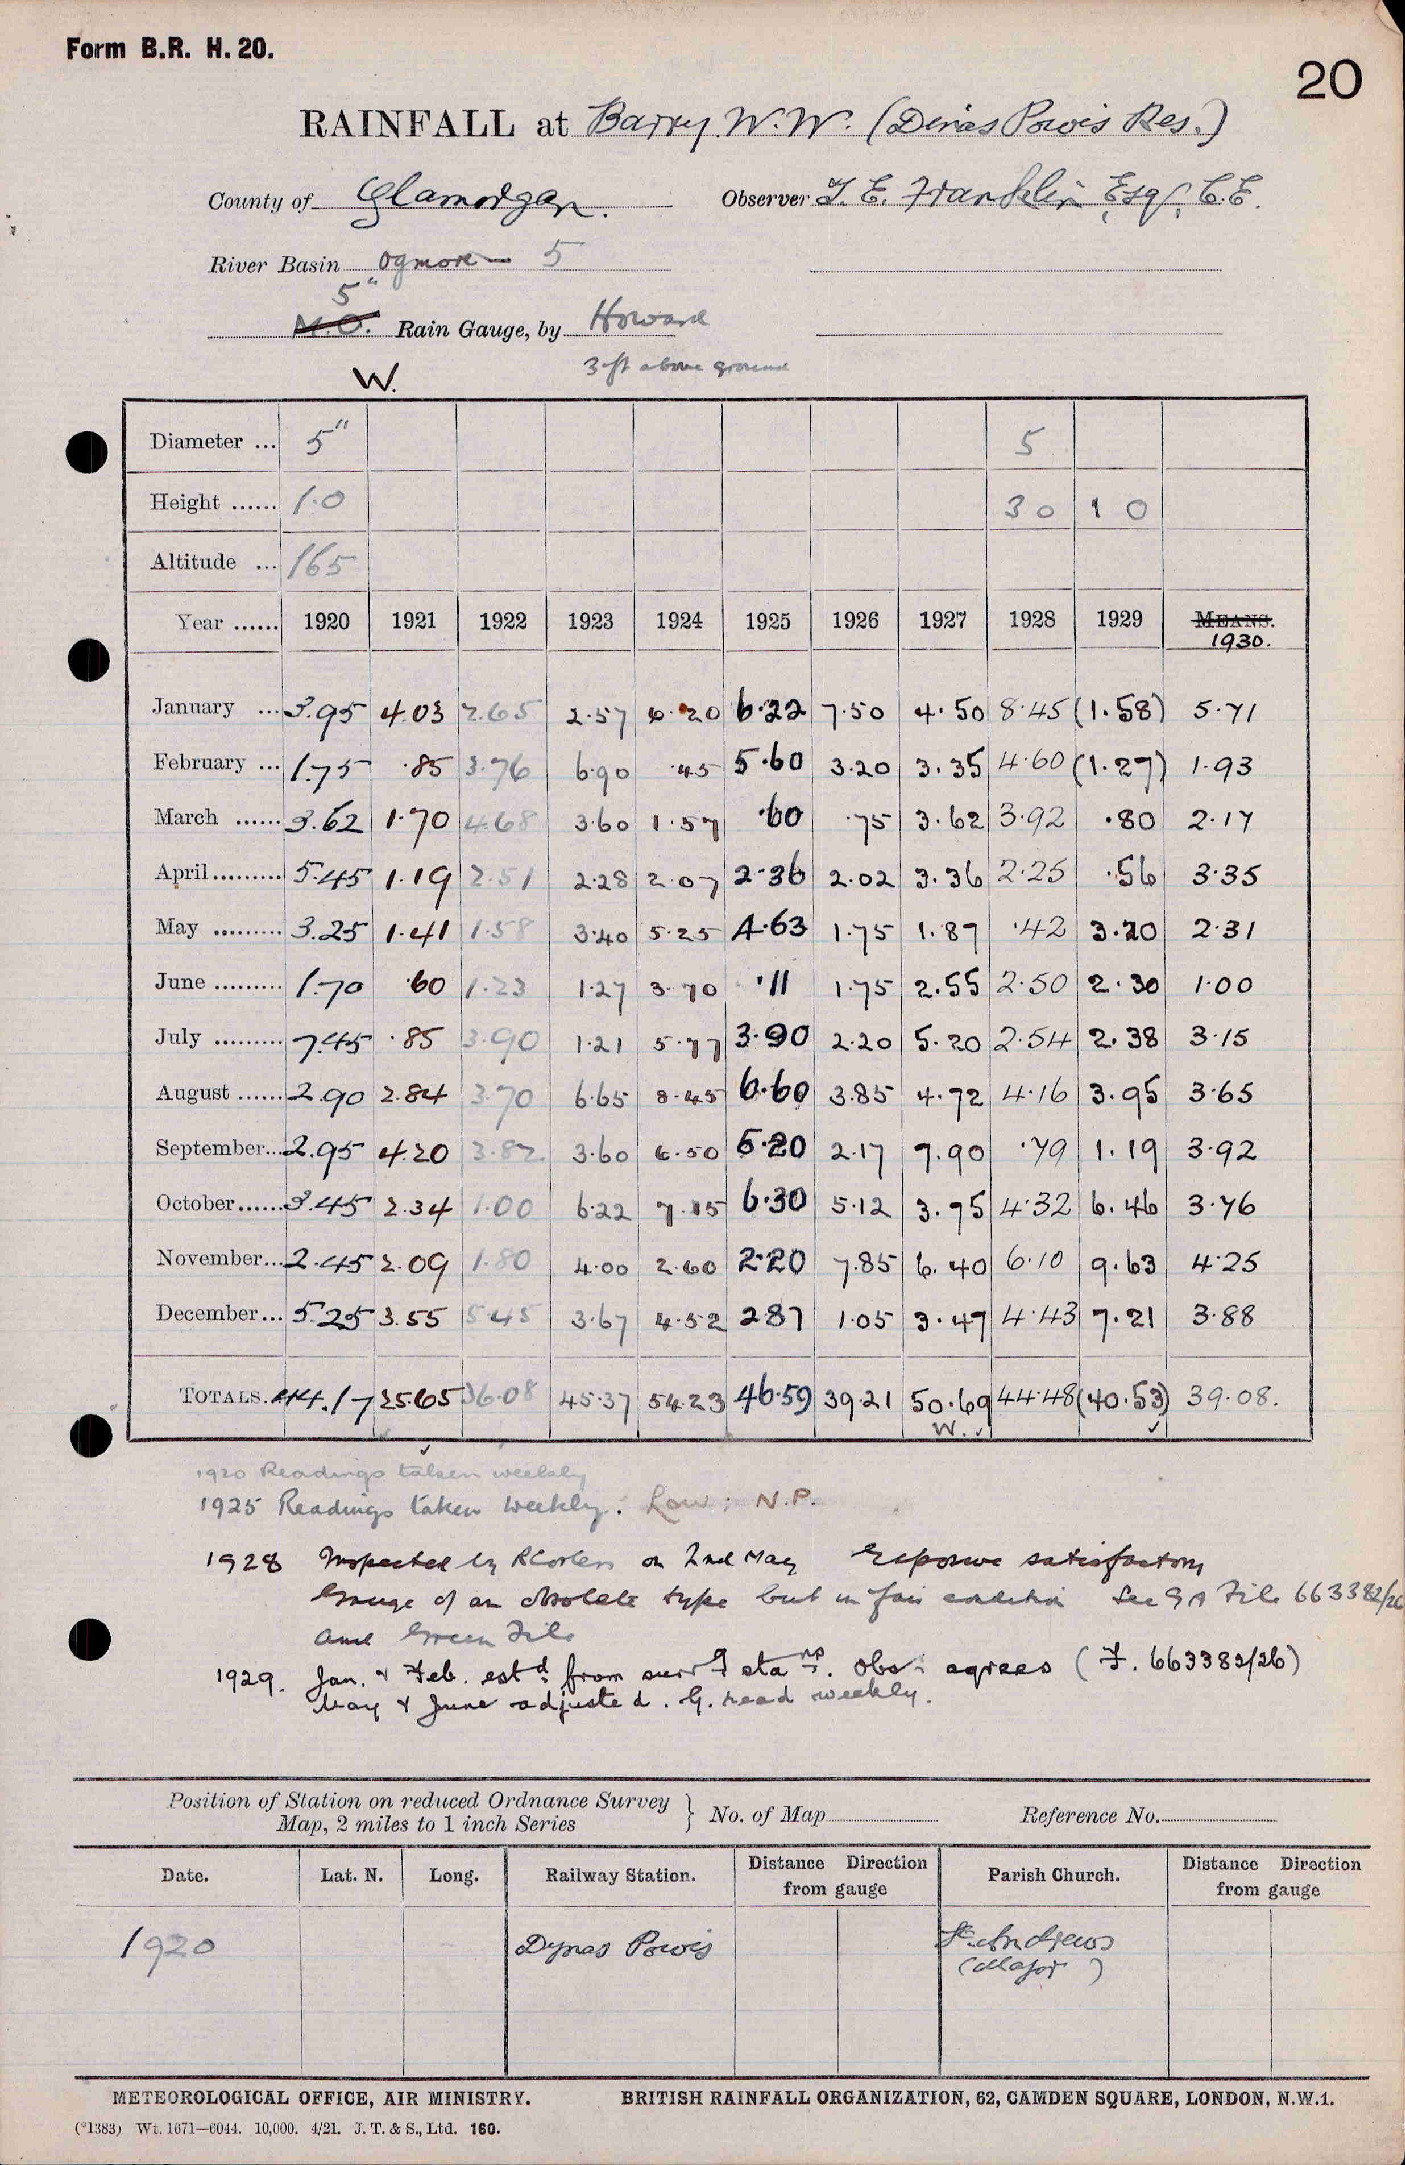 Form B.R. H. 20.
20
RAINFALL at Barry W.W. (Dinas Powis Res.)
County of Glamorgan. Observer T. E. Franklin Esq., C.E.
River Basin Ogmore 5
5"
M.O. Rain Gauge, by Howard
W. 3 ft above ground
Diameter ... 5" 5
Height ...... 1.0 3 0 1 0
Altitude ... 165
Year ...... 1920 1921 1922 1923 1924 1925 1926 1927 1928 1929 MEANS.
1930.
January ... 3.95 4.03 2.65 2.57 6.20 6.22 7.50 4.50 8.45 (1.58) 5.71
February ... 1.75 .85 3.76 6.90 .45 5.60 3.20 3.35 4.60 (1.27) 1.93
March ...... 3.62 1.70 4.68 3.60 1.57 .60 .75 3.62 3.92 .80 2.17
April ......... 5.45 1.19 2.51 2.28 2.07 2.36 2.02 3.36 2.25 .56 3.35
May ......... 3.25 1.41 1.58 3.40 5.25 4.63 1.75 1.87 .42 3.20 2.31
June ......... 1.70 .60 1.23 1.27 3.70 .11 1.75 2.55 2.50 2.30 1.00
July ......... 7.45 .85 3.90 1.21 5.77 3.90 2.20 5.20 2.54 2.38 3.15
August ...... 2.90 2.84 3.70 6.65 8.45 6.60 3.85 4.72 4.16 3.95 3.65
September... 2.95 4.20 3.82 3.60 6.50 5.20 2.17 7.90 .79 1.19 3.92
October...... 3.45 2.34 1.00 6.22 7.15 6.30 5.12 3.75 4.32 6.46 3.76
November... 2.45 2.09 1.80 4.00 2.60 2.20 7.85 6.40 6.10 9.63 4.25
December... 5.25 3.55 5.45 3.67 4.52 2.87 1.05 3.47 4.43 7.21 3.88
TOTALS. 44.17 25.65 36.08 45.37 54.23 46.59 39.21 50.69 44.48 (40.53) 39.08.
W. ✓ ✓
1920 Readings taken weekly
1925 Readings taken weekly. Low: N.P.
1928 Inspected by on 2nd May Exposure satisfactory
Gauge of an obsolete type but in fair condition See GA File 663382/26
and Green File
1929. Jan. & Feb. estd. from surrg stans. Obs: agrees (F. 663382/26)
May & June adjusted. G. read weekly.
Position of Station on reduced Ordnance Survey
Map, 2 miles to 1 inch Series } No. of Map Reference No.
Date. Lat. N. Long. Railway Station. Distance Direction from gauge Parish Church. Distance Direction from gauge
1920 Dynas Powis St. Andrews
(Major)
METEOROLOGICAL OFFICE, AIR MINISTRY. BRITISH RAINFALL ORGANIZATION, 62, CAMDEN SQUARE, LONDON, N.W.1.
(*1383) Wt. 1671—6044. 10,000. 4/21. J. T. & S., Ltd. 160.